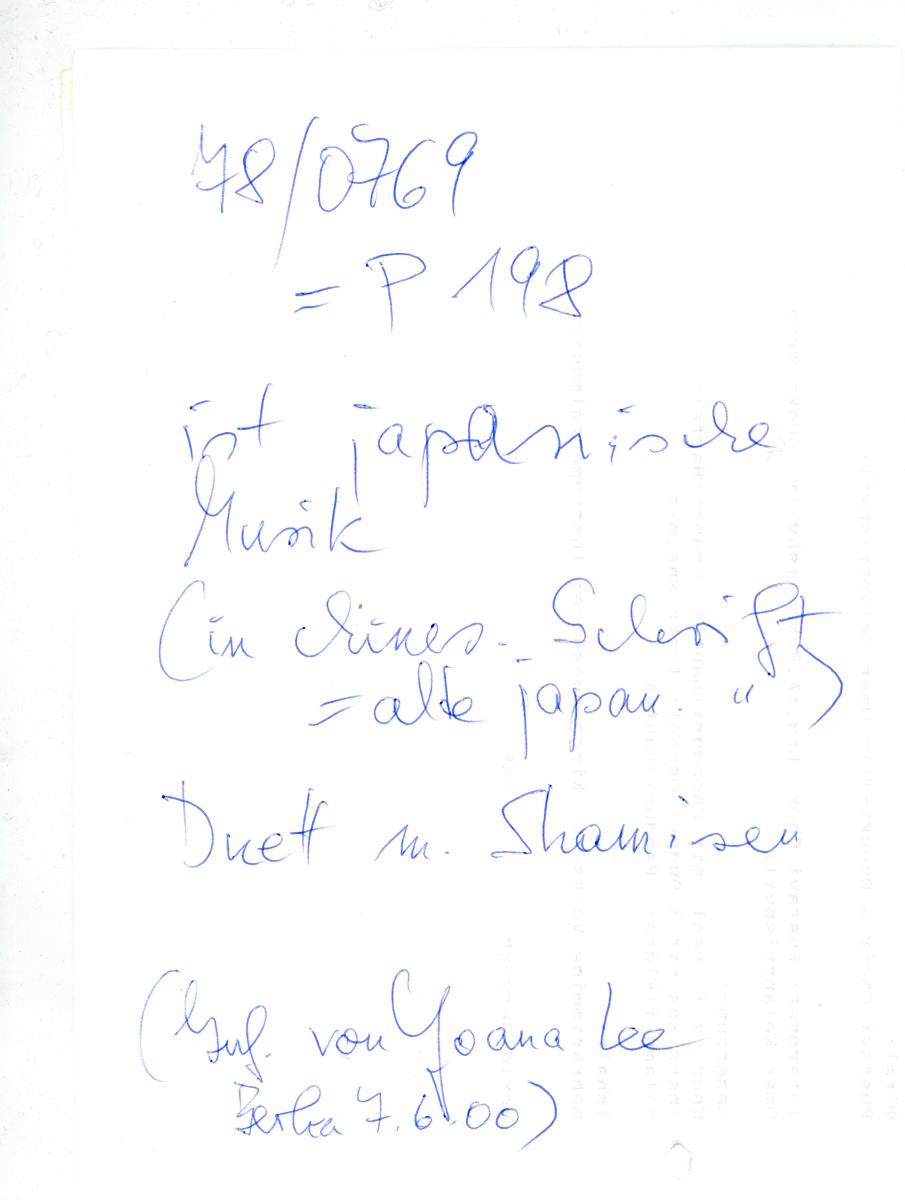 78/0769
= P 198
ist japanische
Musik
(in chines. Schrift
= alte japan. ")
Duett m. Shamisen
(Inf. von Yoana Lee
Berlin 7.6.00)